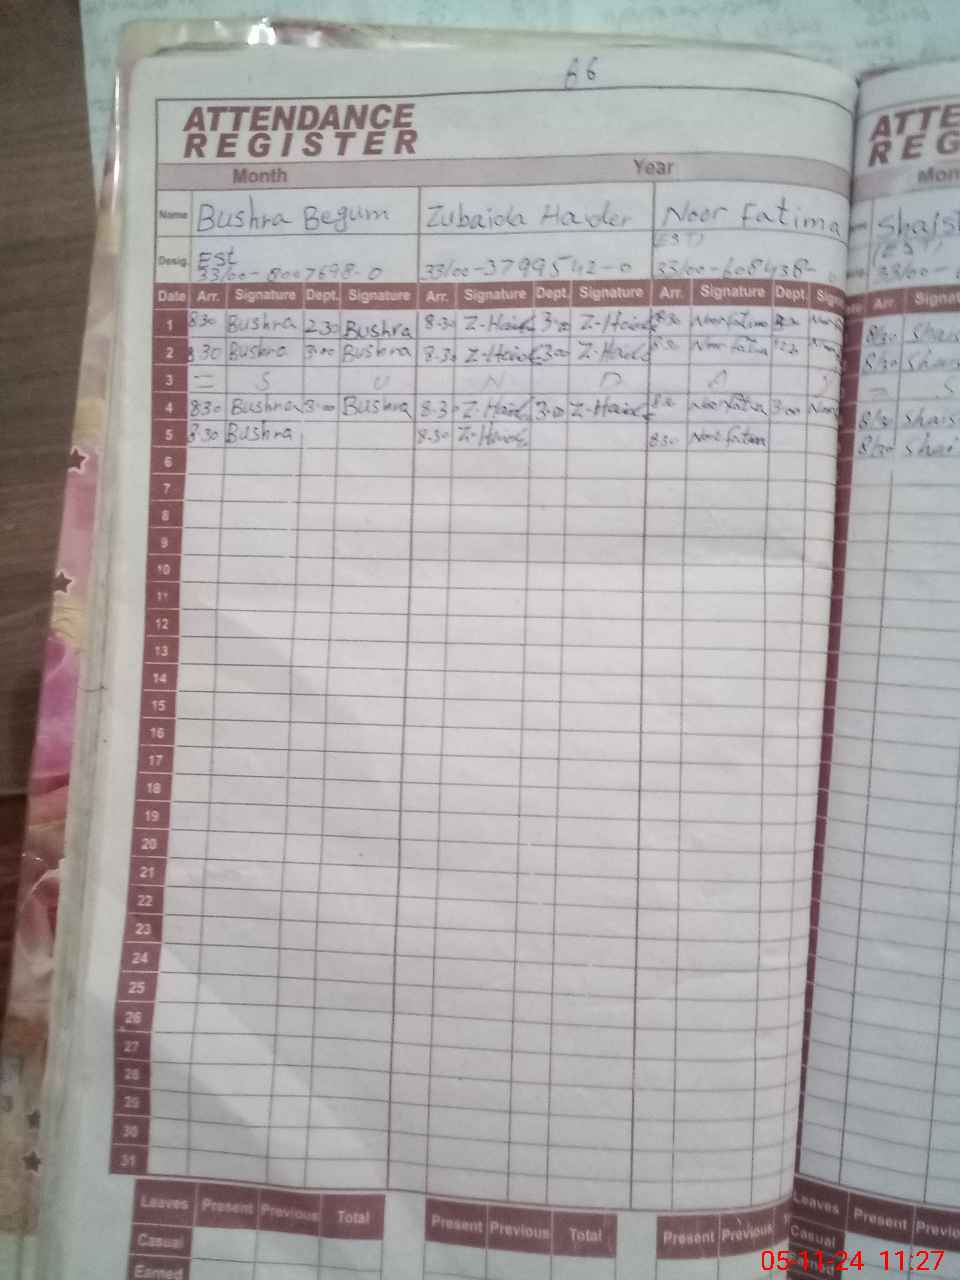 A6
ATTENDANCE
REGISTER
Month Year
Name Bushra Begum Zubaida Haider Noor Fatima
Desig. Est (EST)
33/00-8007698-0 33/00-3799542-0 33/00-608438-
Date Arr. Signature Dept. Signature Arr. Signature Dept. Signature Arr. Signature Dept.
1 8.30 Bushra 2.30 Bushra 8-30 Z-Haid 3-00 Z-Haid 8.30 Noor fatima
2 8.30 Bushra 3-00 Bushra 8-30 Z-Haid 3-00 Z-Haid 8.30 Noor fatima
3 = S U N D A Y
4 830 Bushra 3-00 Bushra 8-30 Z-Haid 3-00 Z-Haid Noor fatima 3-00 Noor
5 8.30 Bushra 8-30 Z-Haid 830 Noor fatima
6
7
8
9
10
11
12
13
14
15
16
17
18
19
20
21
22
23
24
25
26
27
28
29
30
31
Leaves Present Previous Total Present Previous Total Present Previous
Casual
Earned
ATTE
REG
Mon
Shais
(EST)
33/00-
Arr. Signat
8/30 Shais
8/30 Shais
= S
8/30 Shais
8/30 Shais
Leaves Present Previo
Casual
05-11-24 11:27